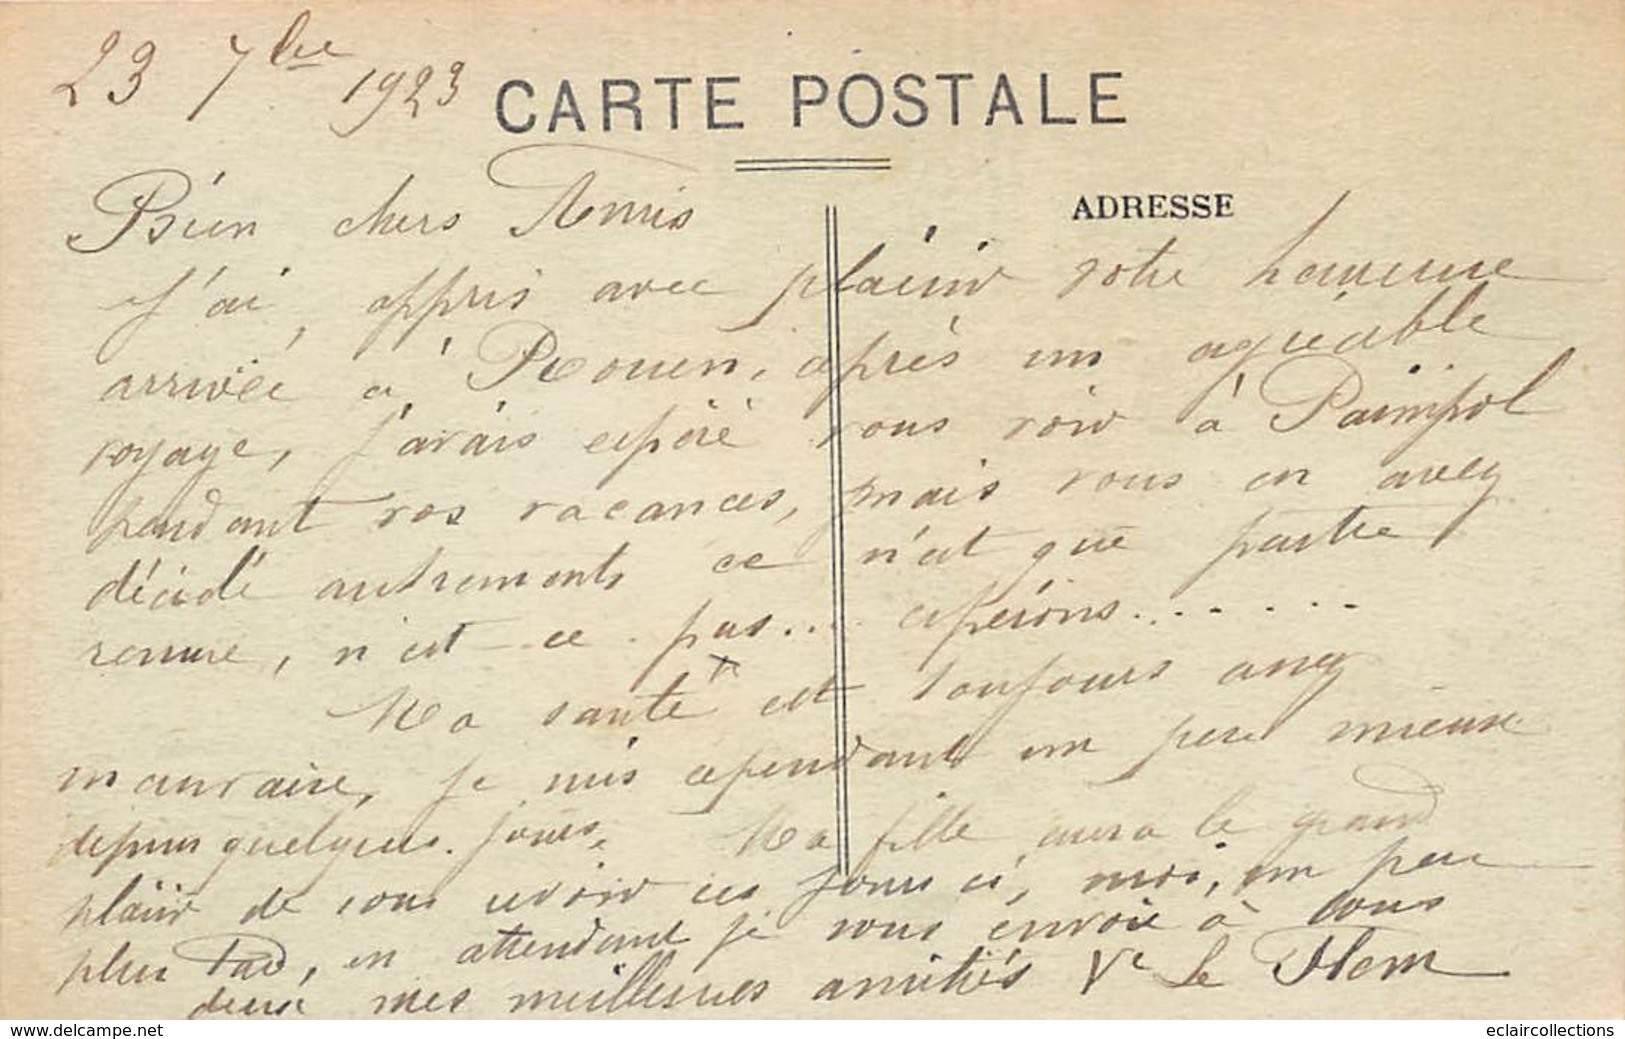 23 7bre 1923
CARTE POSTALE
ADRESSE
Bien chers Amis
J'ai, appris avec plaisir votre heureuse
arrivée à Rouen, après un agréable
voyage, j'avais espéré vous voir à Paimpol
pendant vos vacances, mais vous en avez
décidé autrements ce n'est que partie
remise, n'est-ce pas... espérons.......
Ma santé est toujours assez
mauvaise, je suis cependant un peu mieux
depuis quelques jours. Ma fille aura le grand
plaisir de vous revoir ces jours ci, moi, un peu
plus tard, en attendant je vous envoie à tous
deux mes meilleures amitiés Ve Le Flem
www.delcampe.net
eclaircollections